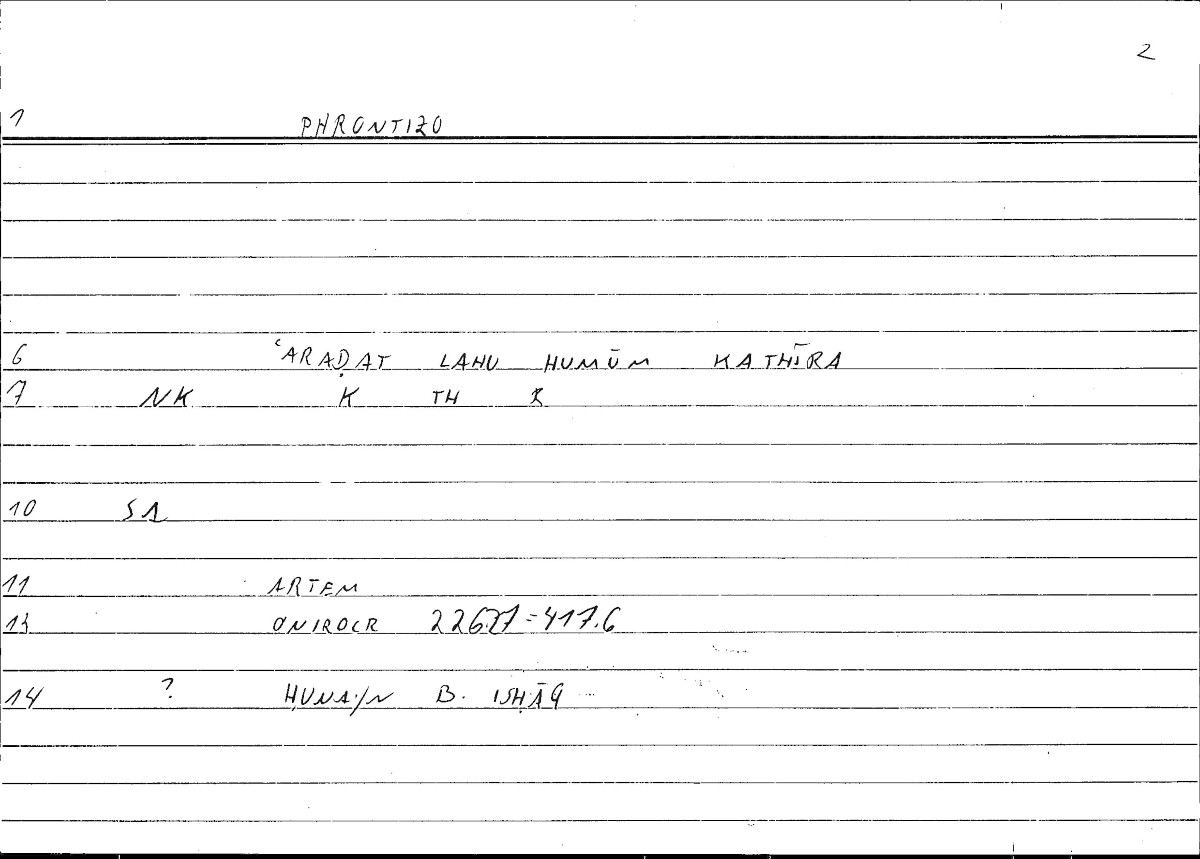 2
1 PHRONTIZO
6 ʿARAḌAT LAHU HUMŪM KATHĪRA
7 NK K TH R
10 SA
11 ARTEM
13 ONIROCR 226.27=417.6
14 ? ḤUNAYN B. ISḤĀQ